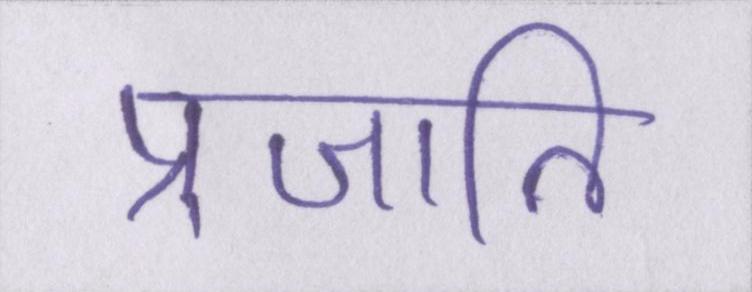 प्रजाति